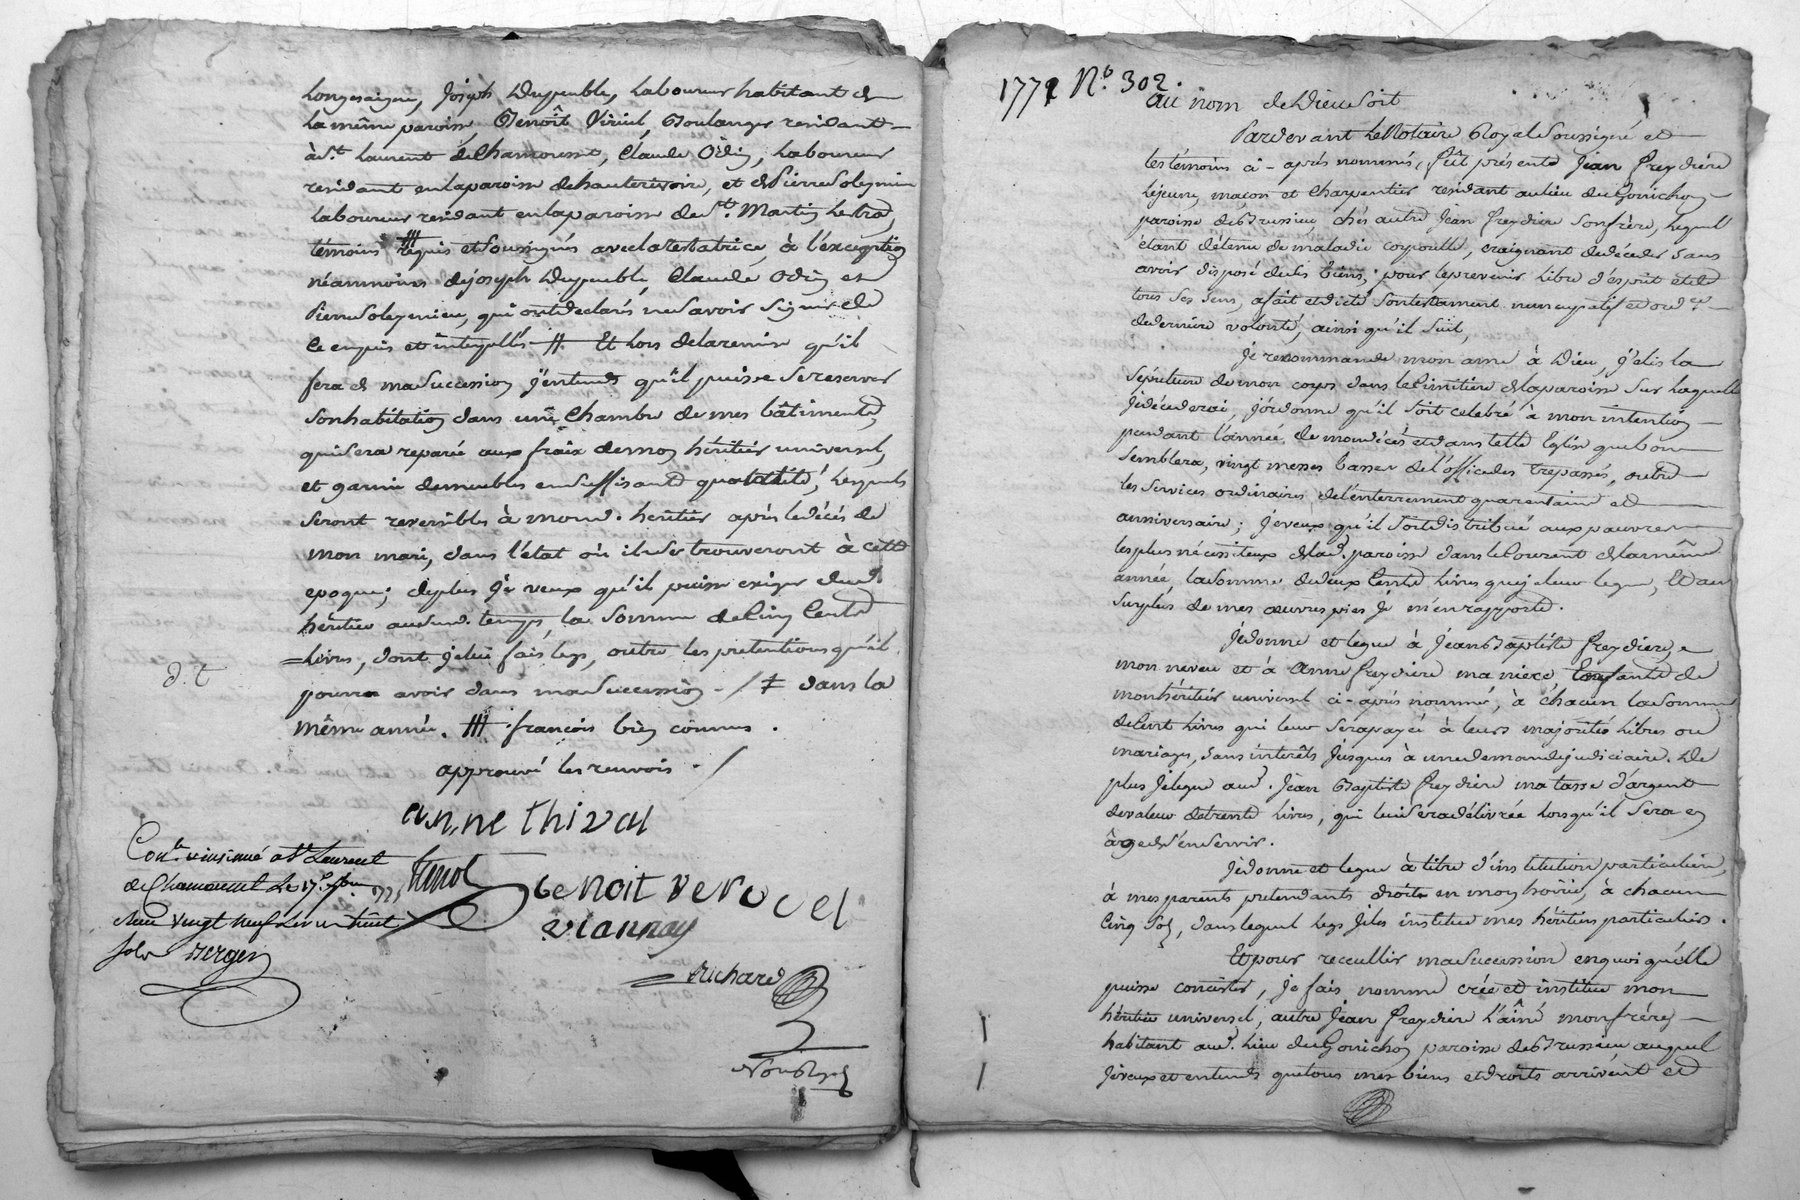 Longesaigne, Joseph Dupeuble, Laboureur habitant de
La même paroisse, Benoît Viricel, Boulanger residant
à St. Laurent de Chamousset, Claude Odin, Laboureur
residant en la paroisse de hauterivoire, et de Pierre Soleymieu
Laboureur residant en la paroisse de St. Martin Lestra,
témoins requis et Soussignés avec la testatrice, à l'exception
néammoins de joseph Dupeuble, Claude Odin et
Pierre Soleymieu, qui ont declarés ne savoir Signer de
Ce enquis et interpellés # Et Lors de la remise qu'il
fera de ma Succession j'entends qu'il puisse Se reserver
Son habitation dans une Chambre de mes bâtiments,
qui Sera reparée aux fraix de mon héritier universel,
et garnie de meubles en Suffisante quottité, Lesquels
Seront reversibles à mond. héritier après le décés de
mon mari, dans l'état où ils Se trouveront à cette
epoque; deplus Je veux qu'il puisse exiger dud.
héritier aud. temps, la Somme de Cinq Cents
Livres, dont je lui fais legs, outre les pretentions qu'il
pourra avoir dans ma Succession - / ‡ dans la
même année. # françois bien connus.
approuvé les renvois - /
d. t
anne thival
benoit verycel
viannay
Richard
Con.lé & insinué a St. Laurent
de Chamousset Le 17e
Reçu vingt neuf Livres huit
Sols Berger
1772 N.o 302.
Au nom de Dieu Soit
Pardevant Le Notaire Royal Soussigné et
les témoins ci-après nommés, fût présent Jean freydiere
Lejeune, maçon et Charpentier residant au lieu du Gonichon
paroisse de Brussieu, chés autre Jean freydiere Son frère, Lequel
étant détenu de maladie corporelle, craignant de décéder Sans
avoir disposé de Ses biens; pour le prevenir Libre d'esprit et de
tous Ses Sens, a fait et dicté Son testament nuncupatif et ord.ce
de derniere volonté, ainsi qu'il Suit,
Je recommande mon ame à Dieu, j'elis la
Sépulture de mon corps dans le Cimitiere de la paroisse Sur Laquelle
Je décéderai, j'ordonne qu'il Soit celebré à mon intention
pendant l'année de mon décés et dans telle Eglise que bon
Semblera, vingt messes basses de l'office des trepassés, outre
les Services ordinaires de l'enterrement quarantaine et
anniversaire; je veux qu'il Soit distribué aux pauvres
les plus nécessiteux de lad. paroisse dans le Courant de la même
année, la Somme de deux Cents Livres que je leur legue, Et au
Surplus de mes œuvres pies Je m'en rapporte.
Je donne et legue à Jean Baptiste freydiere
mon neveu et à Anne freydiere ma niece, Enfants de
mon héritier universel ci-après nommé, à chacun la Somme
de Cent Livres qui leur Sera payée à leurs majorités Libres ou
mariages, Sans intérêts Jusques à une demande judiciaire. De
plus Je legue aud. Jean Baptiste freydiere ma tasse d'argent
de valeur de trente Livres, qui lui Sera délivrée Lorsqu'il Sera en
âge de S'en Servir.
Je donne et legue à titre d'institution particuliere,
à mes parents pretendants droits en mon hoirie, à chacun
Cinq Sols, dans lequel legs Je les institue mes héritiers particuliers.
Et pour receullir ma Succession en quoi qu'elle
puisse consister, Je fais nomme crée et institue mon
héritier universel, autre Jean freydiere L'aîné mon frère,
habitant aud. Lieu du Gonichon paroisse de Brussieu auquel
Je veux et entends que tous mes biens et droits arrivent et